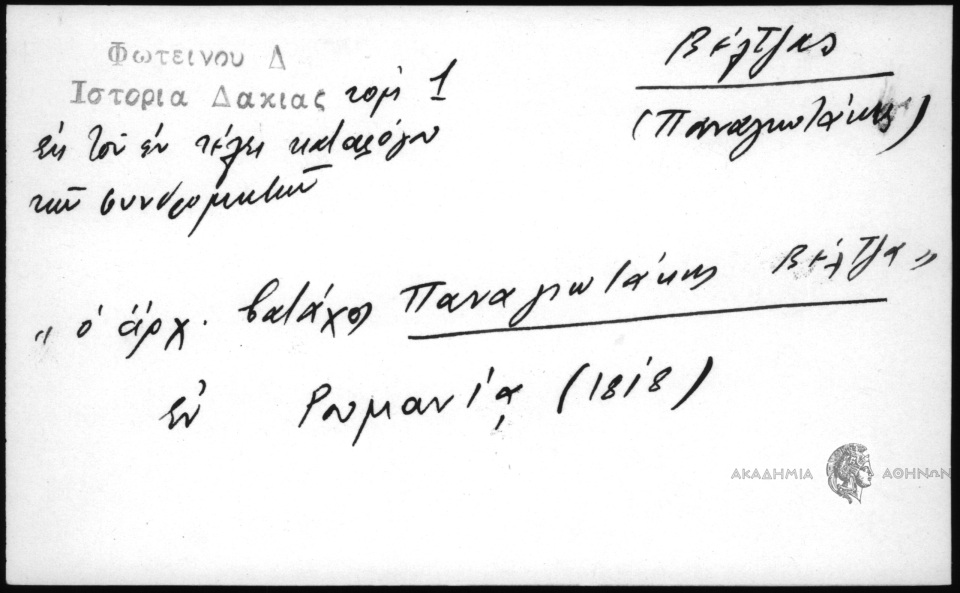 Φωτεινου Δ
Ιστορια Δακιας τομ. 1
εκ του εν τέλει καταλόγου
των συνδρομητών
Βέλτζας
(Παναγιωτάκης)
„ ὁ ἄρχ. βατάχος Παναγιωτάκης Βέλτζα „
ἐν Ρουμανίᾳ (1818)
ΑΚΑΔΗΜΙΑ ΑΘΗΝΩΝ